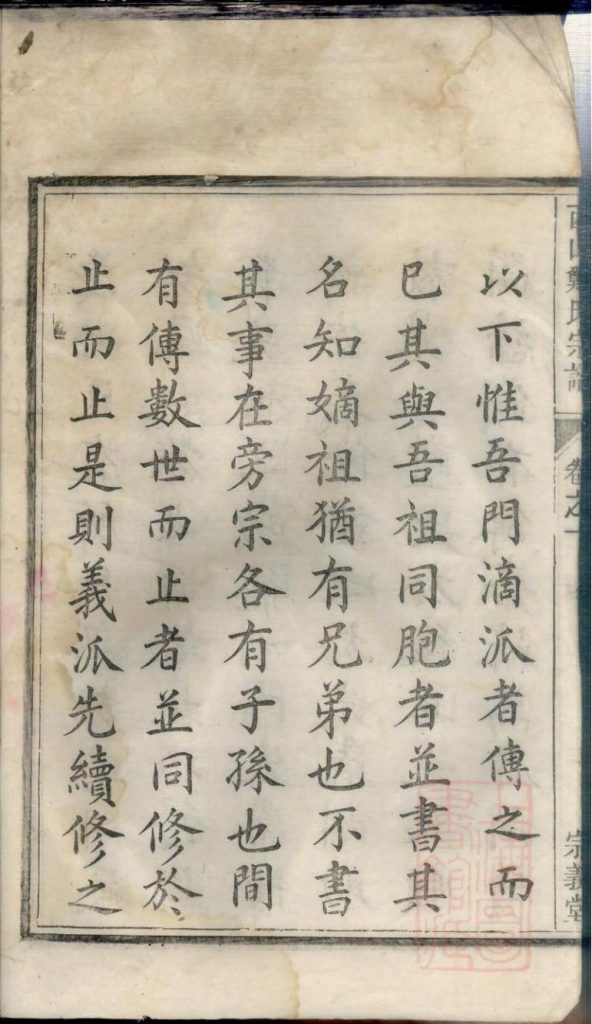 西山鄭氏宗譜 卷之一 宗義堂
以下惟吾門滴派者傳之而
已其與吾祖同胞者並書其
名知嫡祖猶有兄弟也不書
其事在旁宗各有子孫也間
有傳數世而止者並同修於
止而止是則義派先續修之